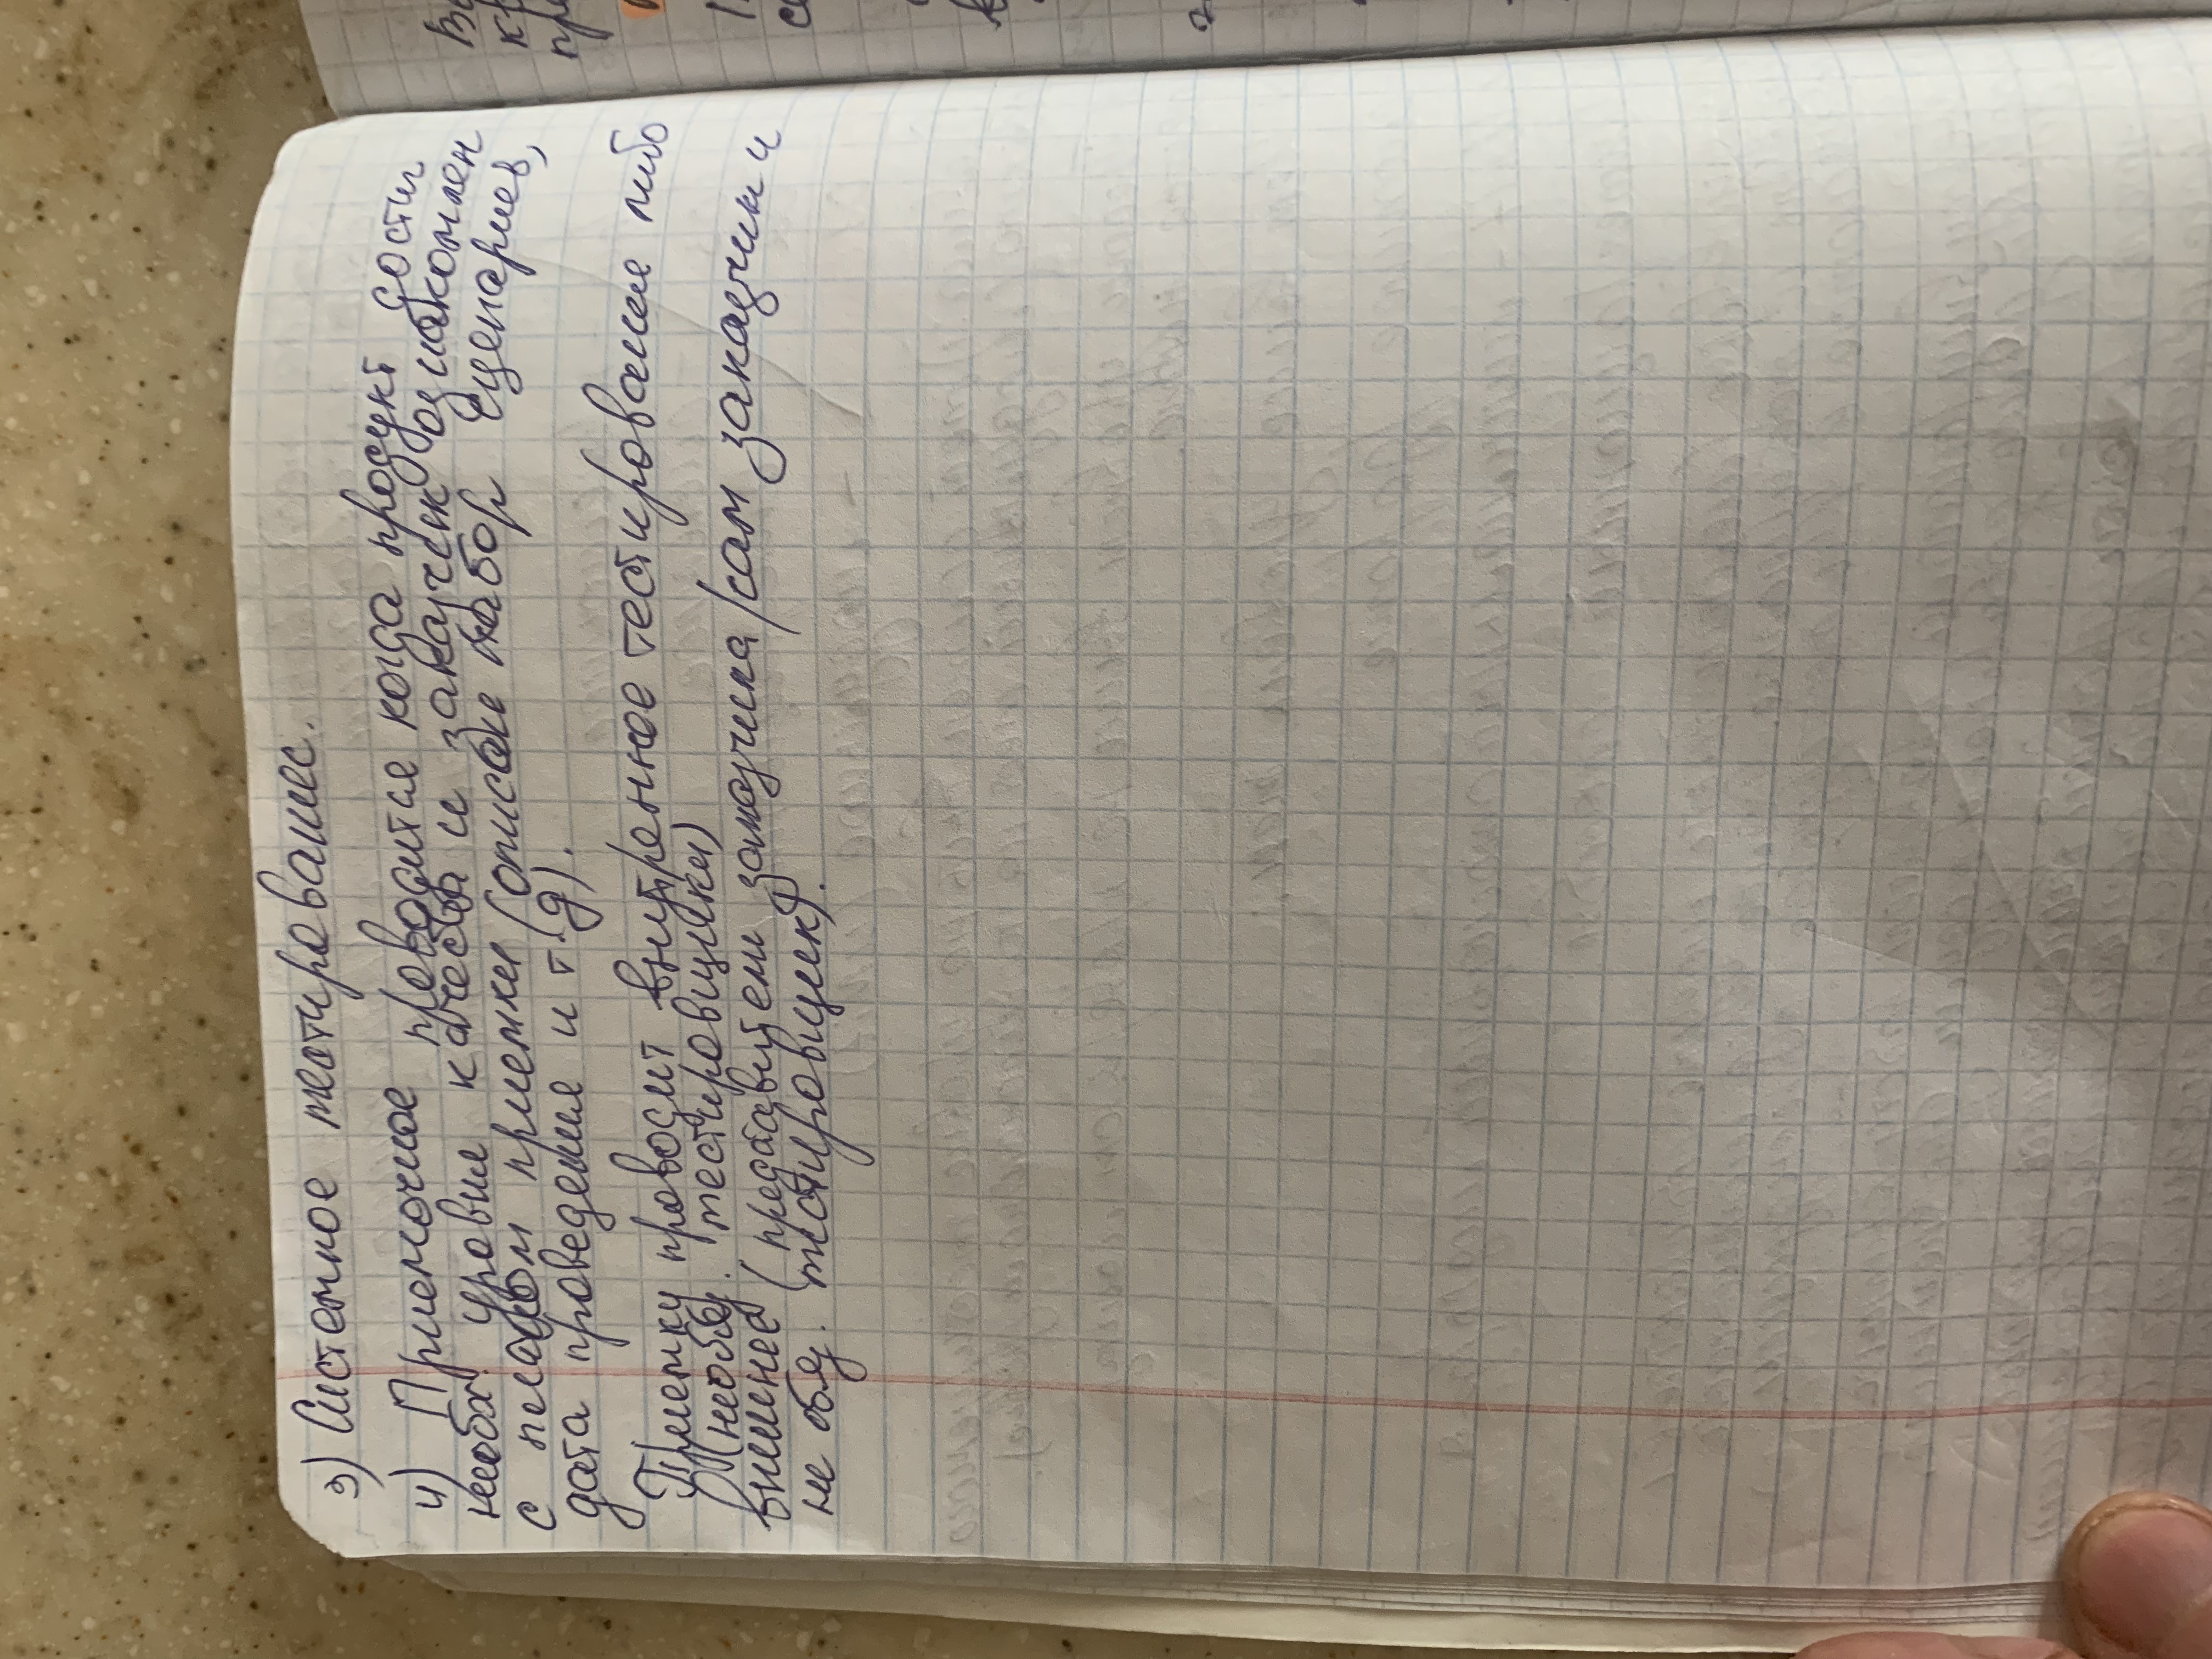 3) Системное тестирование.
4) Приемочное проводится когда продукт достиг
необх. уровня качества и заказчик ознакомлен
с планом приемки (описан набор сценариев,
дата проведения и т.д).
Приемку проводит внутренное тестирование либо
(необяз. тестировщики)
внешнее (представители заказчика/сам заказчик и
не обяз. тестировщик).